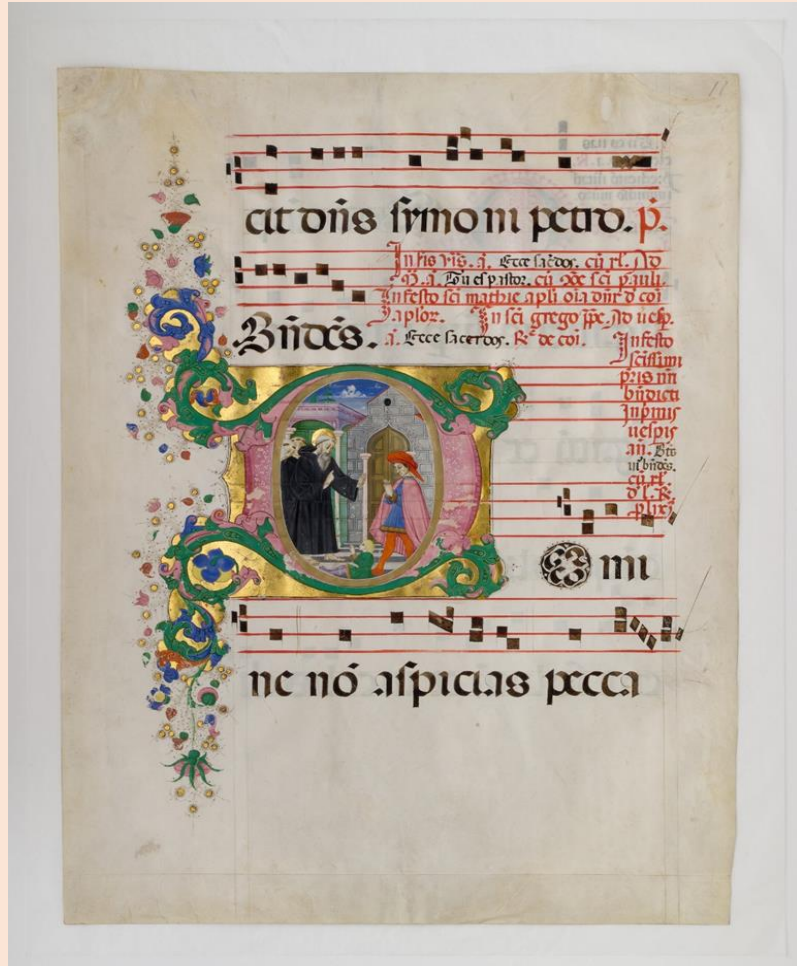 cit dn̄s symoni petro. p̄.
In fīs vīs. a. Ecce sac̄dos. cū rl̄. Ad
M̄. a. Tu es pastor. cū ōōe sc̄i pauli.
In festo sc̄i mathie apl̄i oīa dn̄r d̄ cōi
aplor. In sc̄i grego pp̄e. Ad uesp̄.
Bn̄dc̄s. a. Ecce sacerdos. R̄ de cōi. In festo
scissimi
pr̄is nr̄i
bn̄dicti
In primis
uesp̄is
an̄.
bn̄dc̄s.
cū rl̄.
d̄ l. R̄.
plix̄
D O mi
ne nō aspicias pecca